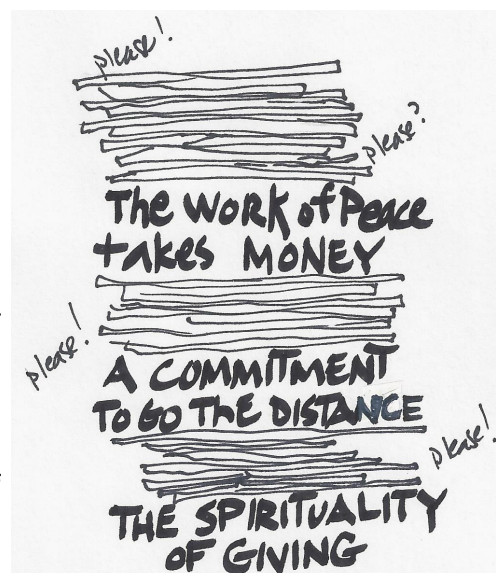 please!
please?
The WORK of Peace
takes MONEY
please!
A COMMITMENT
TO GO ThE DISTANCE
please!
THE SPIRITUALITY
OF GIVING